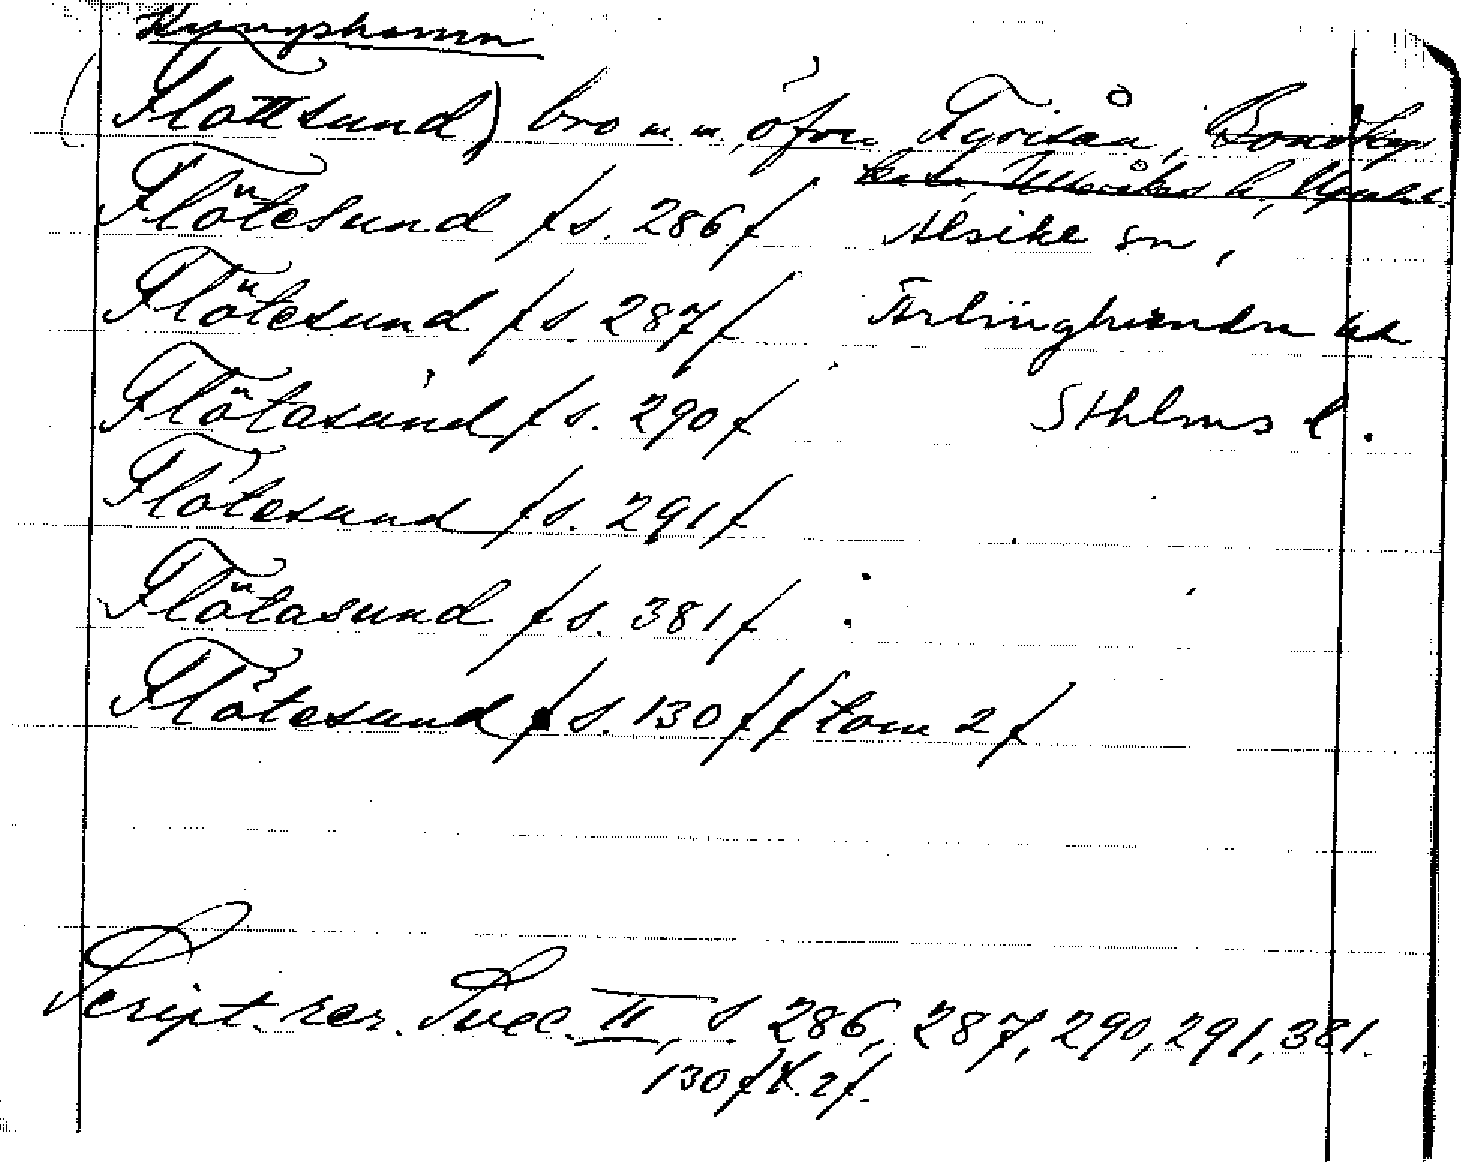 Kungshamn
(Flottsund) bro m.m. öfver Fyrisån, Bondkyrko
sn, Ulleråkers h, Upsala l.
Flötesund /s. 286/ Alsike sn,
Flötesund /s 287/ Ärlinghundra hd
Flötasund /s. 290/ Sthlms l.
Flötesund /s. 291/
Flötasund /s. 381/
Flötesund /s. 130/ /tom 2/
Script. rer. Svec. II, s. 286, 287, 290, 291, 381.
130 /t. 2/.